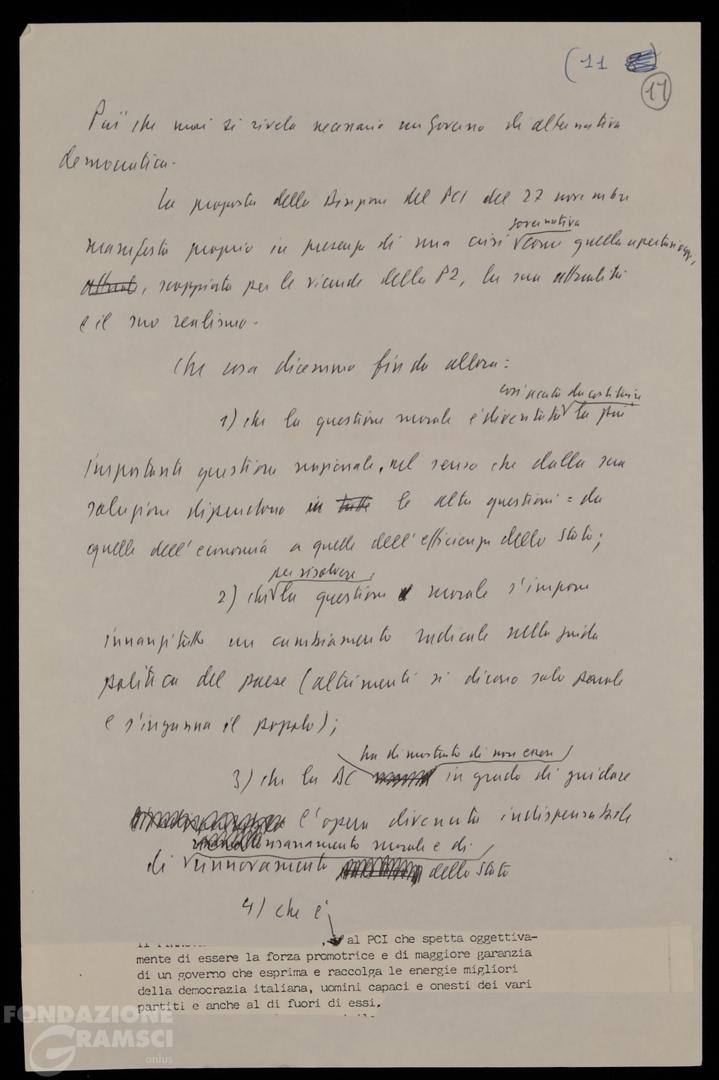 (11
17
Più che mai si rivela necessario un governo di alternativa
democratica.
La proposta della Direzione del PCI del 27 novembre
governativa
manifesta proprio in presenza di una crisi come quella apertasi oggi,
scoppiata per le vicende della P2, la sua attualità
e il suo realismo.
Che cosa dicemmo fin da allora:
così acuta da costituire
1) che la questione morale è diventata la più
importante questione nazionale, nel senso che dalla sua
soluzione dipendono in tutte le altre questioni: da
quelle dell'economia a quelle dell'efficienza dello Stato;
per risolvere
2) che la questione morale s'impone
innanzitutto un cambiamento radicale nella guida
politica del paese (altrimenti si dicono solo parole
e s'inganna il popolo);
ha dimostrato di non essere
3) che la DC in grado di guidare
l'opera divenuta indispensabile
risanamento morale e di
di rinnovamento dello Stato
4) che è
al PCI che spetta oggettiva-
mente di essere la forza promotrice e di maggiore garanzia
di un governo che esprima e raccolga le energie migliori
della democrazia italiana, uomini capaci e onesti dei vari
partiti e anche al di fuori di essi.
FONDAZIONE
GRAMSCI
onlus